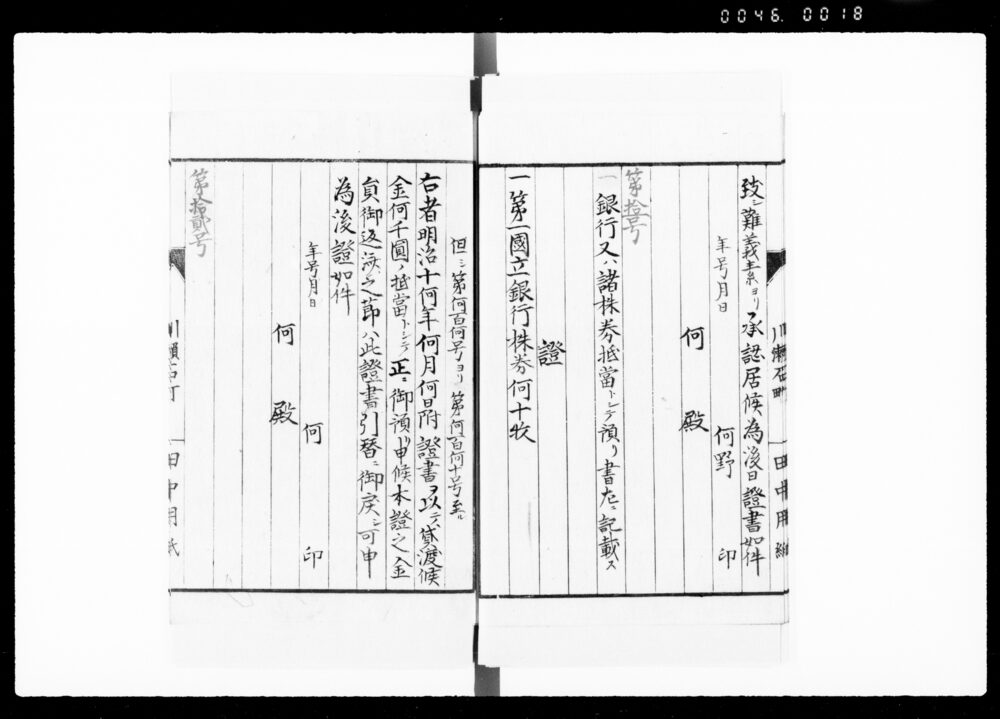 0046. 0018
致シ難義素ヨリ承認居候為後日證書如件
年号月日
何野 印
何 殿
第拾壱号
一 銀行又ハ諸株券抵當トシテ預リ書左ニ記載ス
證
一 第一國立銀行株券何十枚
但シ第何百何号ヨリ第何百何十号至ニ
右者明治十何年何月何日附證書ヲ以テ貸渡候
金何千圓ノ抵當トシテ正ニ御預リ申候本證之金
員御返済之節ハ此證書引替ニ御戻シ可申
為後證如件
年号月日
何 印
何 殿
第拾貳号
田中用紙